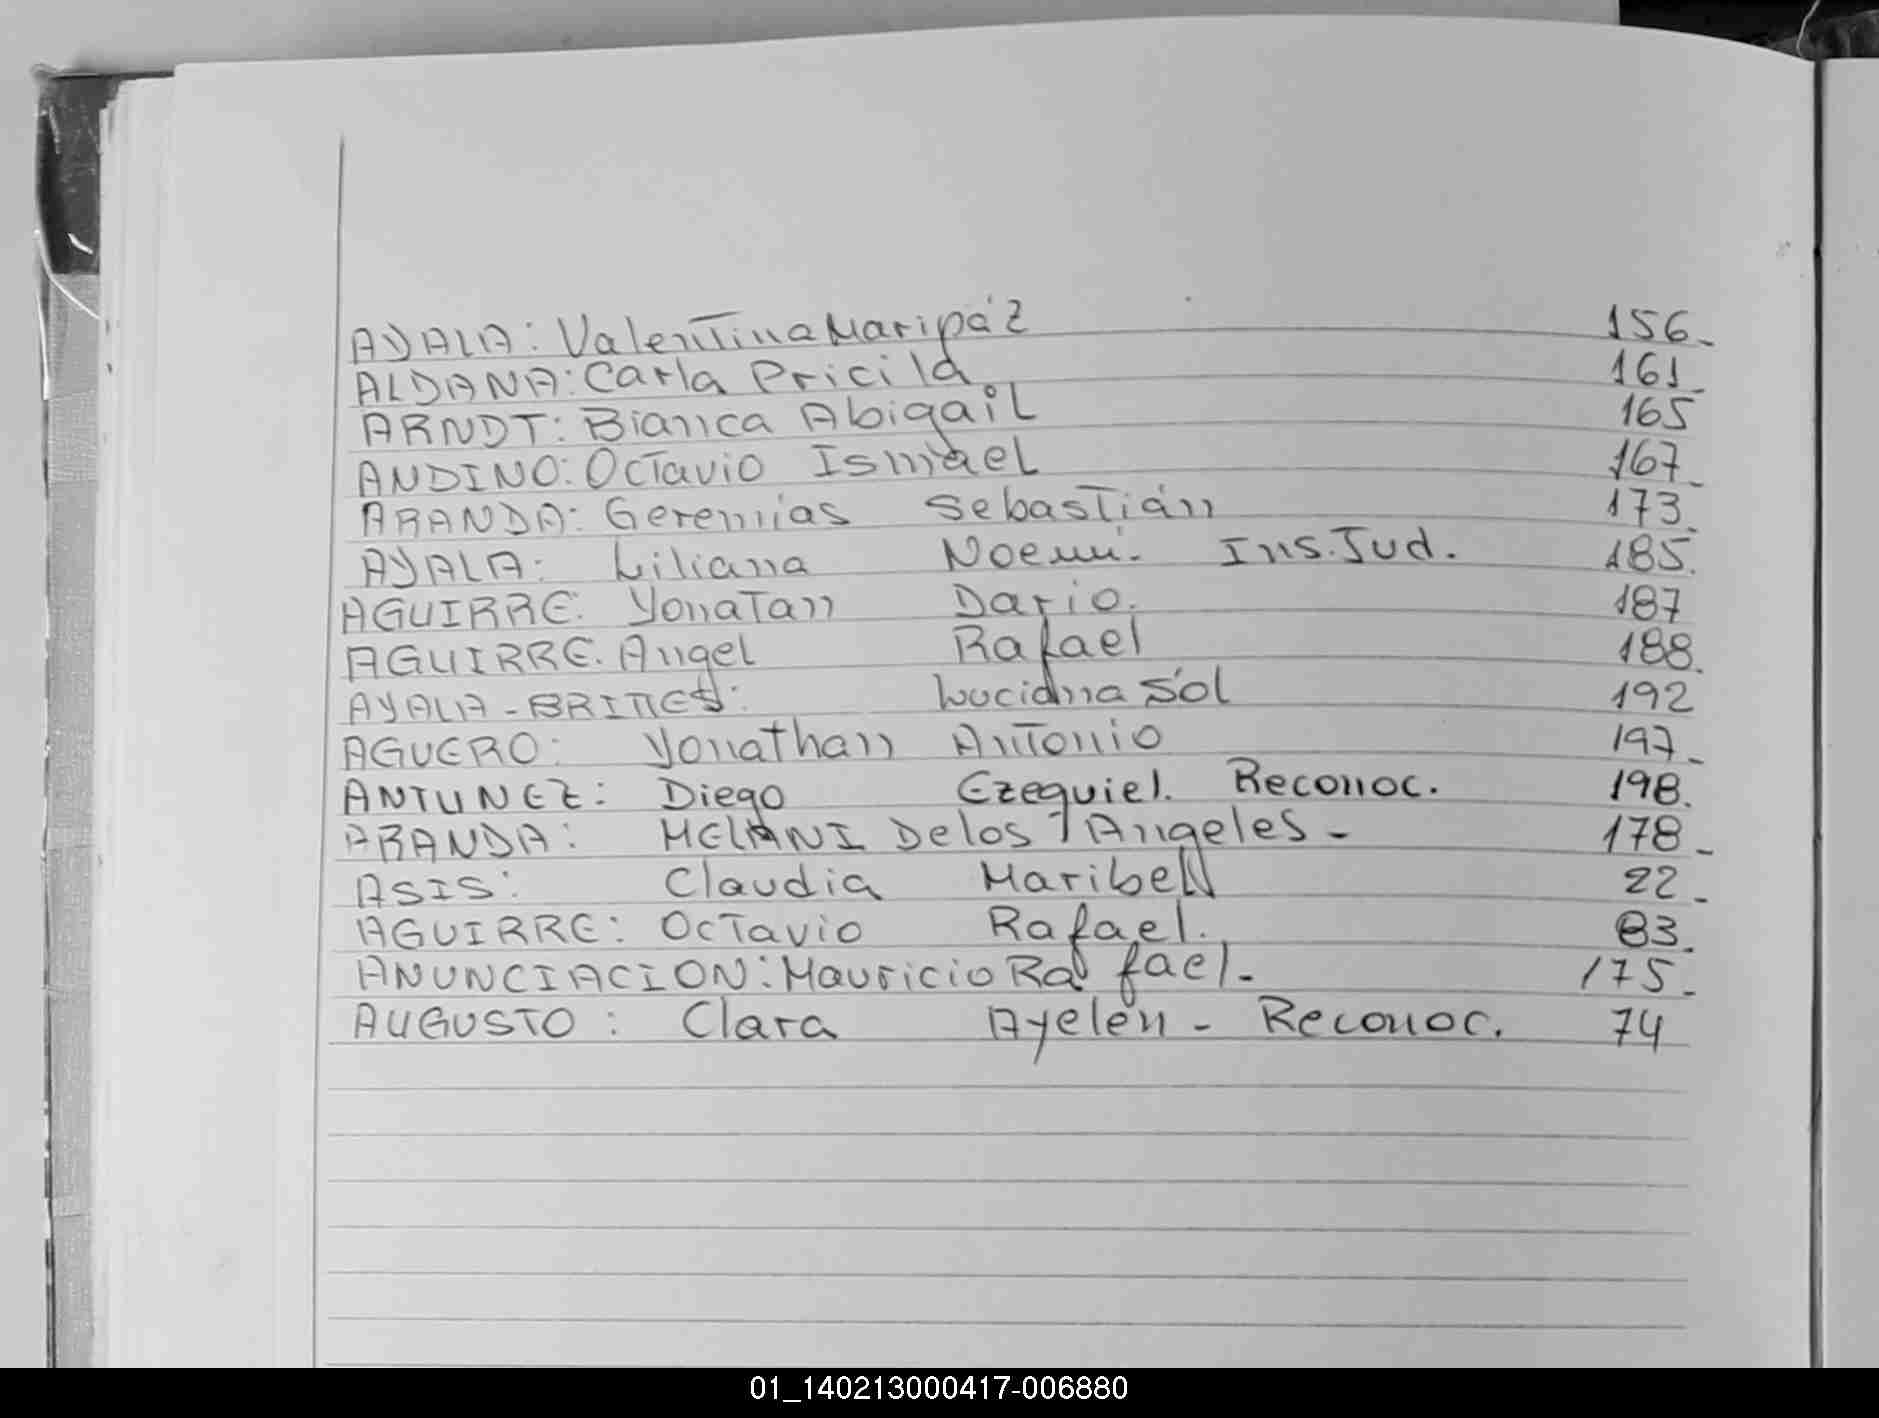 AYALA: Valentina Maripáz 156.
ALDANA: Carla Pricila 161.
ARNDT: Bianca Abigail 165
ANDINO: Octavio Ismael 167.
ARANDA: Geremías Sebastián 173.
AYALA: Liliana Noemi. Ins. Jud. 185.
AGUIRRE: Yonatan Dario. 187
AGUIRRE. Angel Rafael 188.
AYALA-BRITES: Luciana Sol 192
AGUERO: Yonathan Antonio 197.
ANTUNEZ: Diego Ezequiel. Reconoc. 198.
ARANDA: MELANI De los Angeles - 178.
ASIS: Claudia Maribel 22.
AGUIRRE: Octavio Rafael. 83.
ANUNCIACION: Mauricio Rafael. 175.
AUGUSTO: Clara Ayelén - Reconoc. 74
01_140213000417-006880